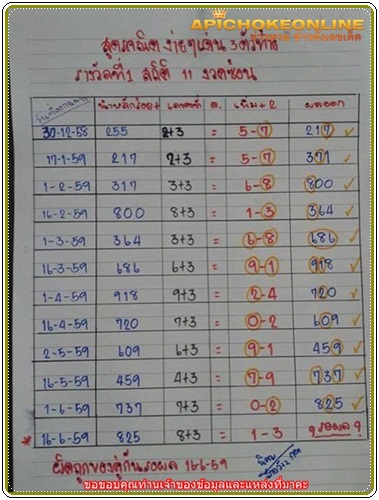 APICHOKEONLINE
สูตรคณิต ง่ายๆเด่น 3 ตัวท้าย
รางวัลที่1 สถิติ 11 งวดซ้อน
นำหลักร้อย+ เลขที่ ด. เพิ่ม+2 ผลออก
30-12-58 255 2+3 = 5-7 217 ✓
17-1-59 217 2+3 = 5-7 371 ✓
1-2-59 317 3+3 = 6-8 800 ✓
16-2-59 800 8+3 = 1-3 364 ✓
1-3-59 364 3+3 = 6-8 686 ✓
16-3-59 686 6+3 = 9-1 918 ✓
1-4-59 918 9+3 = 2-4 720 ✓
16-4-59 720 7+3 = 0-2 609 ✓
2-5-59 609 6+3 = 9-1 459 ✓
16-5-59 459 4+3 = 7-9 737 ✓
1-6-59 737 7+3 = 0-2 825 ✓
* 16-6-59 825 8+3 = 1-3 ? รอผล ?
ผิดถูกของคู่กันรอผล 16-6-59
ขอขอบคุณท่านเจ้าของข้อมูลและแหล่งที่มาค่ะ